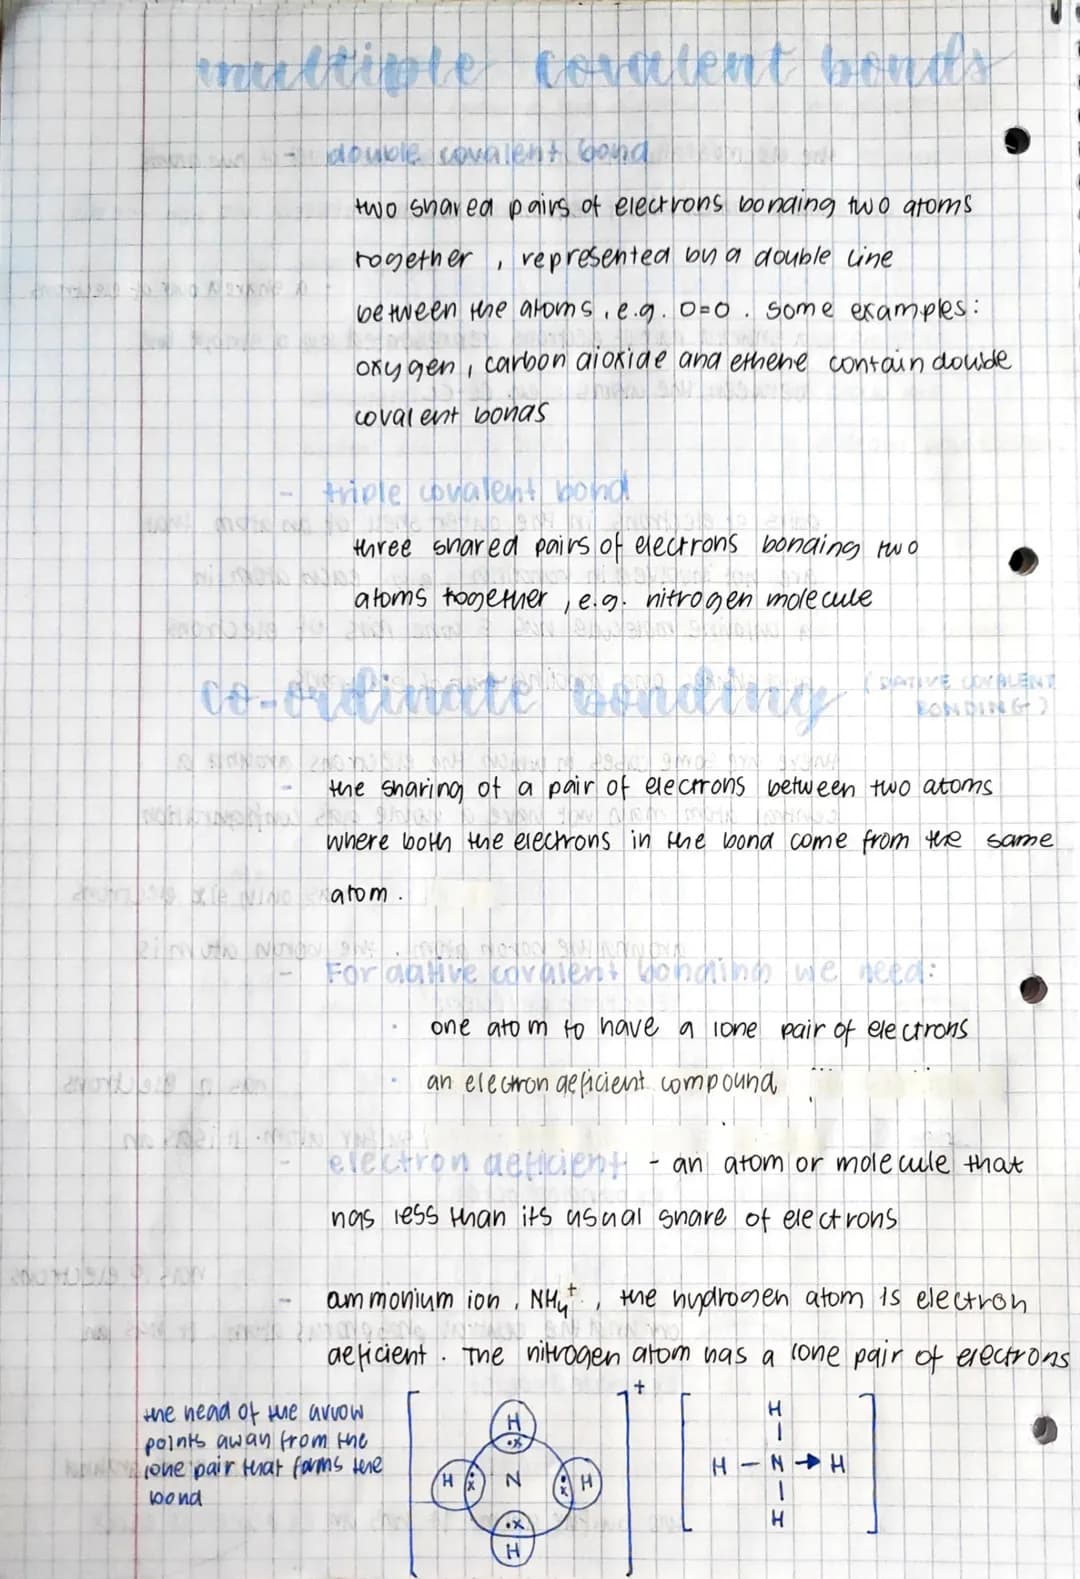 multiple covalent bonds
- double covalent bond
two shared pairs of electrons bonding two atoms
together , represented by a double line
between the atoms , e.g. O=O . Some examples:
oxygen , carbon dioxide and ethene contain double
covalent bonds
- triple covalent bond
three shared pairs of electrons bonding two
atoms together , e.g. nitrogen molecule
co-ordinate bonding (DATIVE COVALENT
BONDING)
- the sharing of a pair of electrons between two atoms
where both the electrons in the bond come from the same
atom .
- For dative covalent bonding we need:
• one atom to have a lone pair of electrons
• an electron deficient compound
- electron deficient - an atom or molecule that
has less than its usual share of electrons
- ammonium ion , NH₄⁺ , the hydrogen atom is electron
deficient . The nitrogen atom has a lone pair of electrons
the head of the arrow
points away from the
lone pair that forms the
bond
+
H
H N H
H
H
H - N → H
H